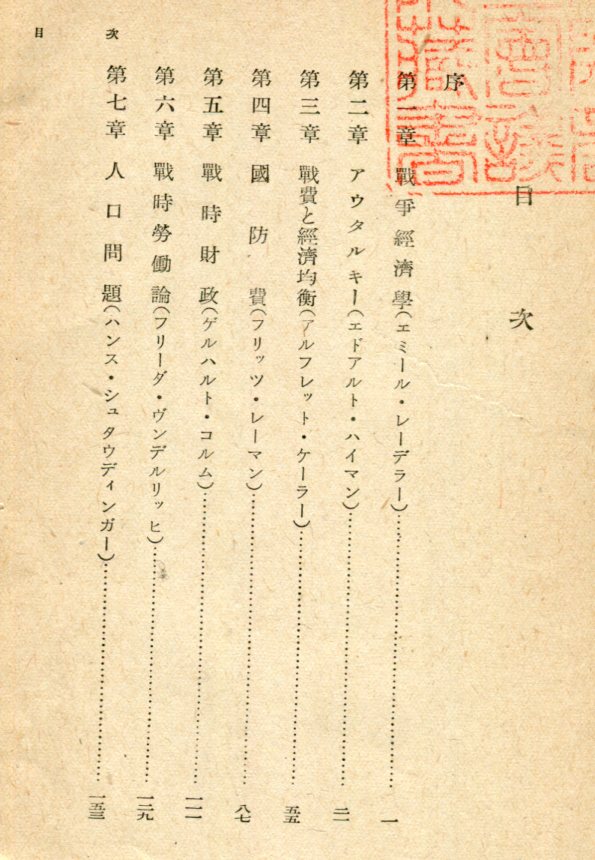 目次
序
第一章 戰爭經濟學(エミール・レーデラー)……一
第二章 アウタルキー(エドアルト・ハイマン)……二一
第三章 戰費と經濟均衡(アルフレット・ケーラー)……五五
第四章 國防費(フリッツ・レーマン)……八七
第五章 戰時財政(ゲルハルト・コルム)……一一一
第六章 戰時勞働論(フリーダ・ヴンデルリッヒ)……一二九
第七章 人口問題(ハンス・シュタウディンガー)……一五三
目次